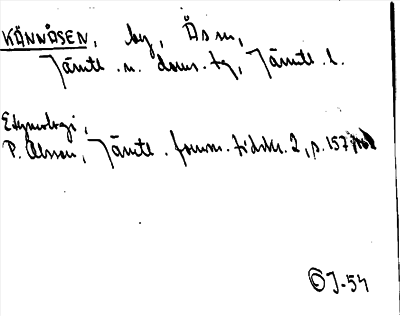 KÄNNÅSEN, by, Ås sn,
Jämtl. n. doms. tg, Jämtl. l.
Etymologi,
P. Olsson, Jämtl. fornm. tidskr. 2, p. 157
ÖJ-54